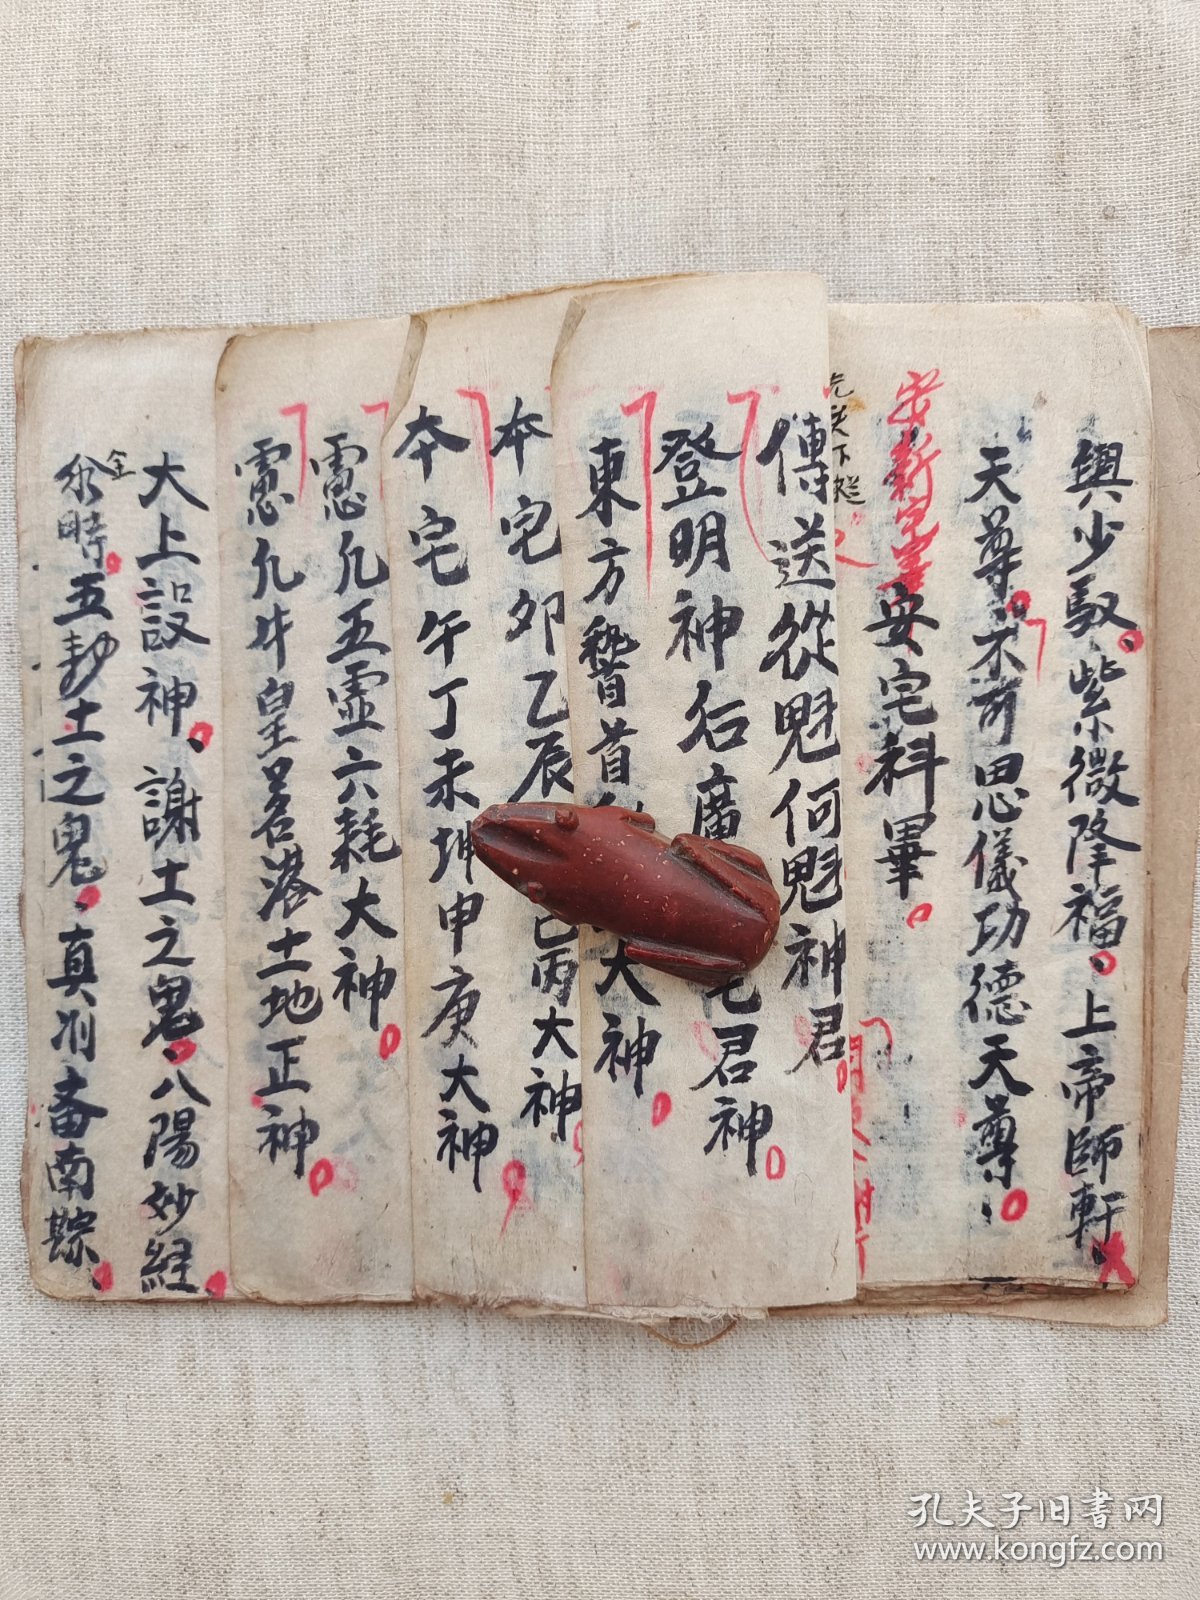 輿少馭紫微降福上帝師軒
天尊不可思儀功德天尊
安新宅畢
安宅科畢
傳送從魁何魁神君
登明神后廣宅君神
東方稽首大神
本宅卯乙辰巳丙大神
本宅午丁未坤申庚大神
九五虛六耗大神
九牛皇君落土地正神
大上設神謝土之鬼八陽妙経
全
時五土之鬼真州斎南
孔夫子旧書网
www.kongfz.com